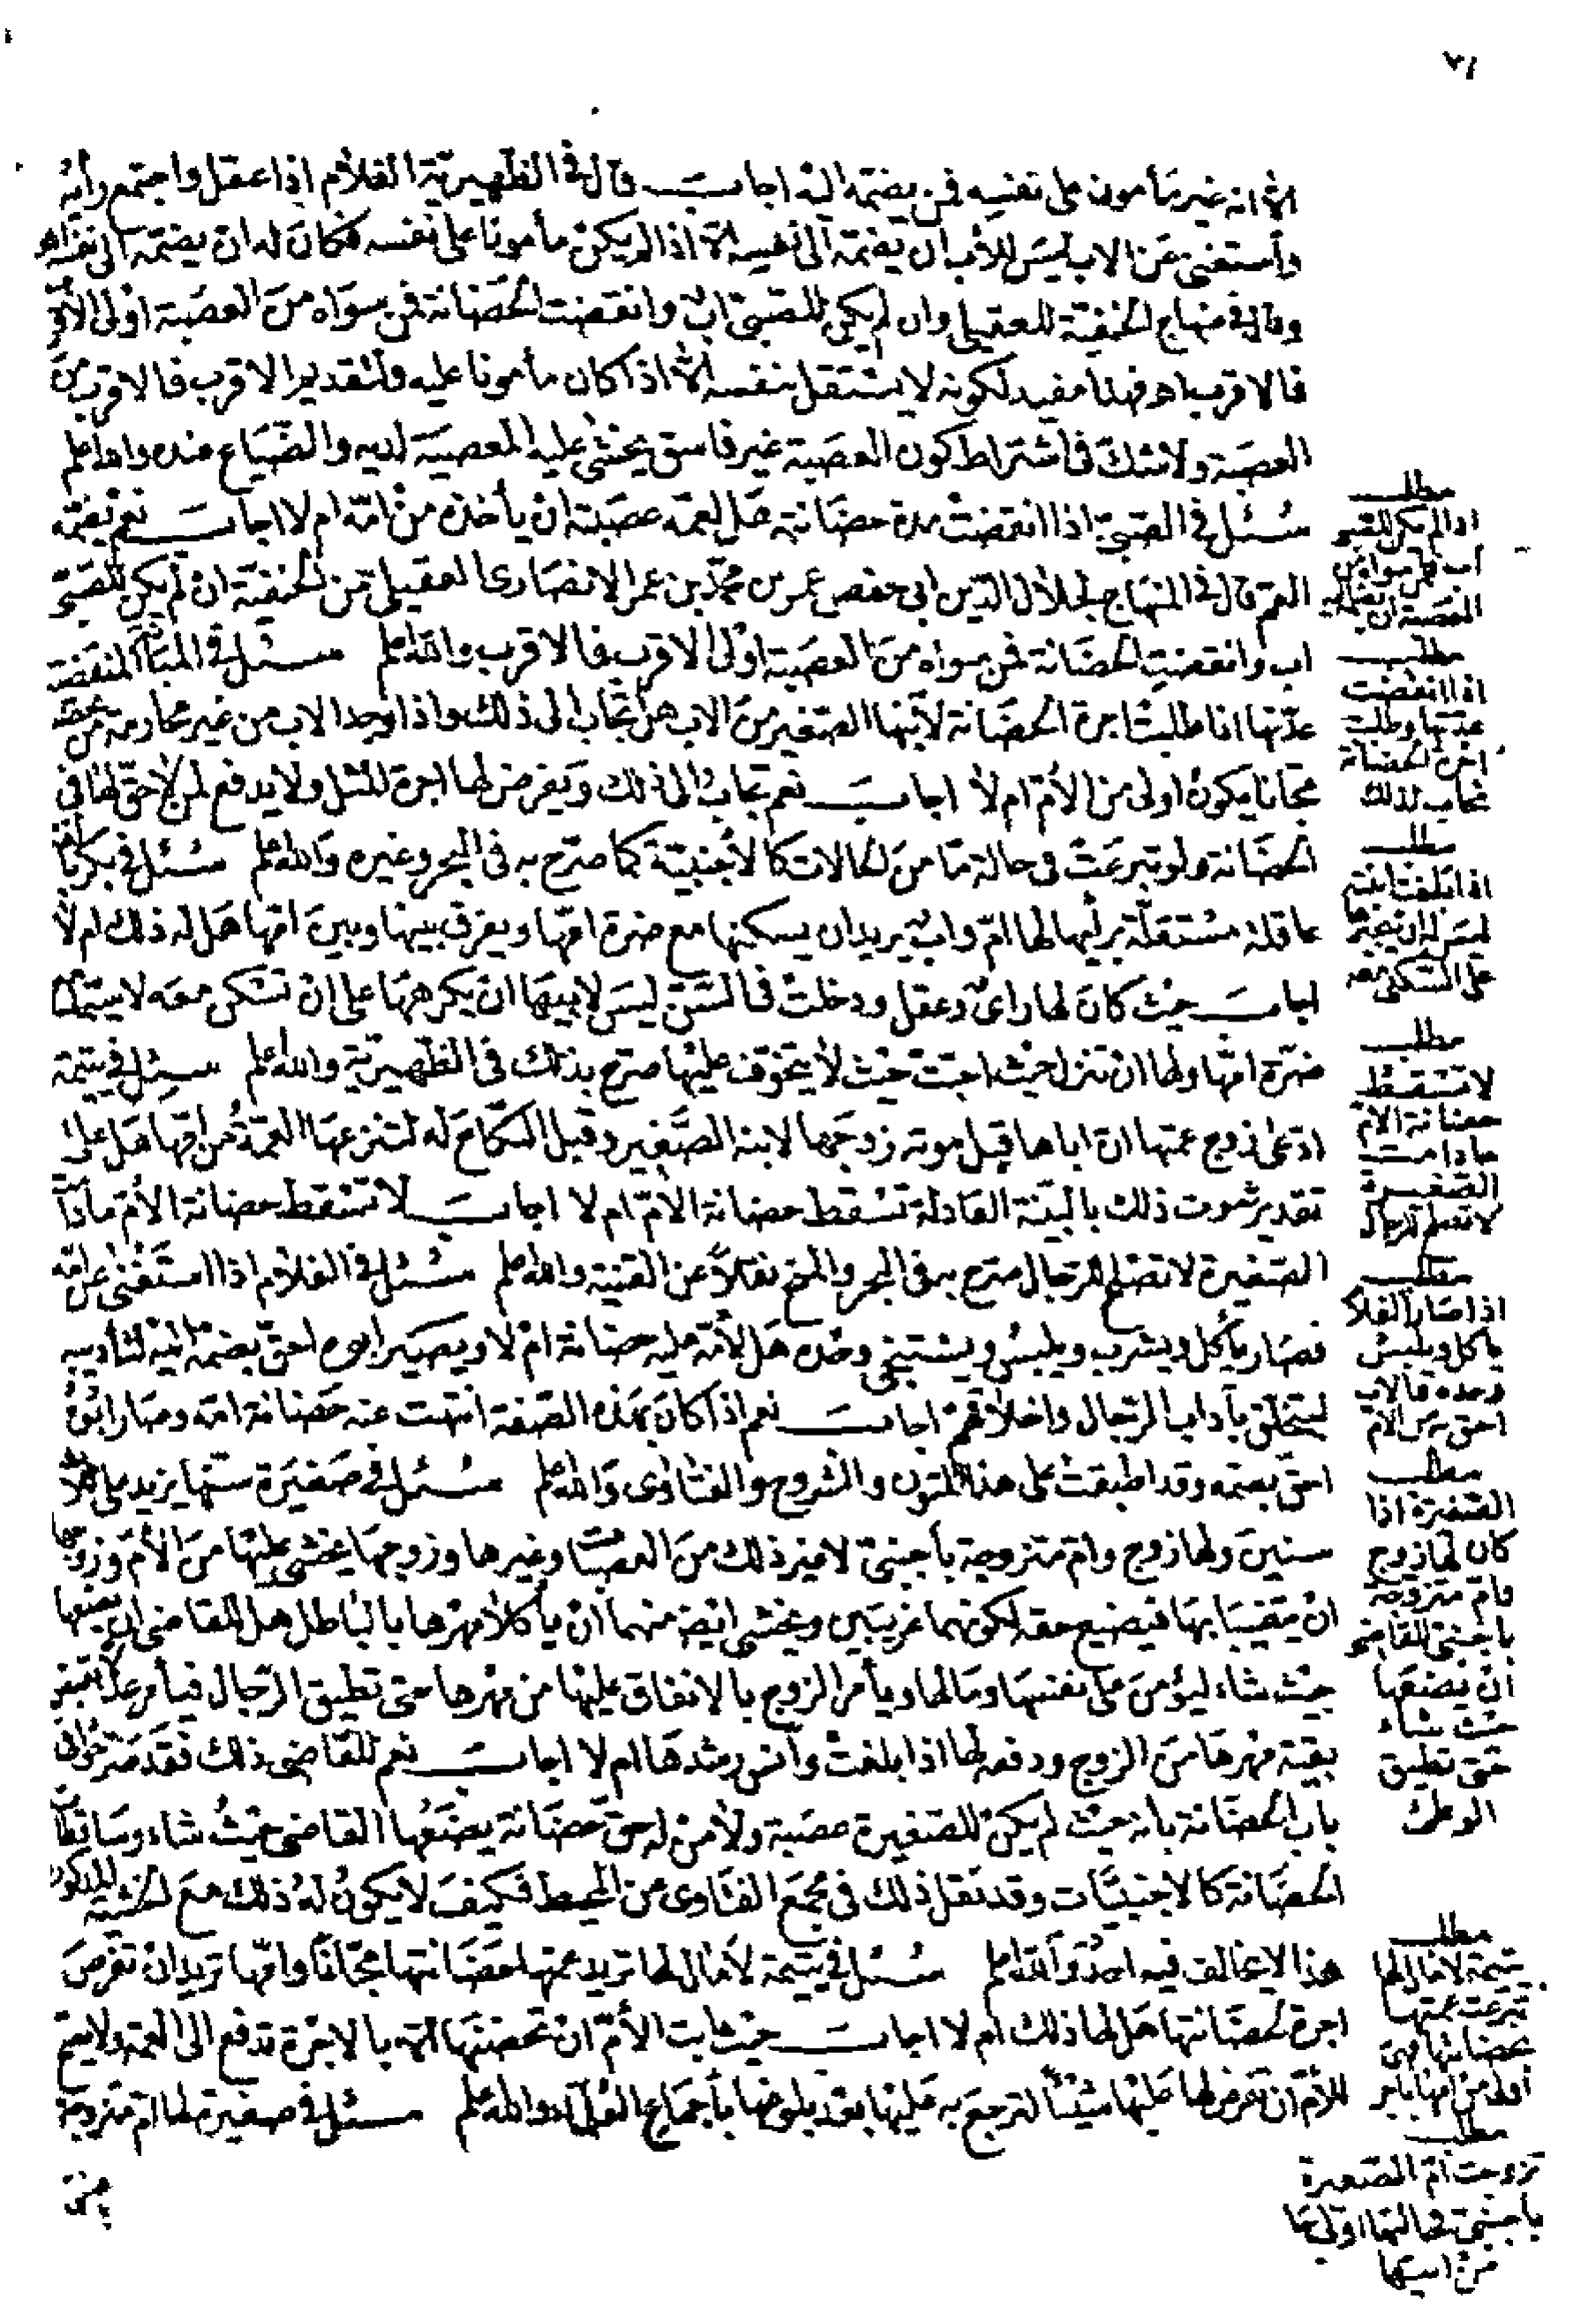 ٧١
الا انه غير مأمون على نفسه فمن يضمه اليه اجاب قال في الظهيرية الغلام اذا عقل واجتمع رأيه
واستغنى عن الاب ليس للأب ان يضمه الى نفسه الا اذا لم يكن مأمونا على نفسه فكان له ان يضمه الى نفسه اه
وقال في منهاج الحنفية للعقيلي وان لم يكن للصبي اب وانقضت الحضانة فمن سواه من العصبة اولى الاقرب
فالاقرب اه فهذا مفيد لكونه لا يستقل بنفسه الا اذا كان مأمونا عليه ولتقديم الاقرب فالاقرب من
العصبة ولا شك في اشتراط كون العصبة غير فاسق يخشى عليه المعصية لديه والضياع عنده والله اعلم
سئل في الصبي اذا انقضت مدة حضانته هل لعمه عصبته ان يأخذه من امه ام لا اجاب نعم يضمه
العم قال في المنهاج لجلال الدين ابي حفص عمر بن محمد بن عمر الانصارى العقيلي من الحنفية ان لم يكن للصبي
اب وانقضت الحضانة فمن سواه من العصبة اولى الاقرب فالاقرب والله اعلم سئل في المبتاتة المنقضية
عدتها اذا طلبت اجرة الحضانة لابنها الصغير من الاب هل تجاب الى ذلك واذا وجد الاب من غير محارمه من يحضنه
مجانا يكون اولى من الأم ام لا اجاب نعم تجاب الى ذلك ويفرض لها اجرة المثل ولا يدفع لمن لا حق لها في
الحضانة ولو تبرعت في حالة ما من الحالات كالأجنبية كما صرح به في البحر وغيره والله اعلم سئل في بكر بالغة
عاقلة مستقلة برأيها لها ام واب يريد ان يسكنها مع ضرة امها ويفرق بينها وبين امها هل له ذلك ام لا
اجاب حيث كان لها رأي وعقل ودخلت في السن ليس لابيها ان يكرهها على ان تسكن معه لا سيما مع
ضرة امها ولها ان تنزل حيث احبت حيث لا يتخوف عليها صرح بذلك في الظهيرية والله اعلم سئل في يتيمة
ادعى زوج عمتها ان اباها قبل موته زوجها لابنه الصغير وقبل النكاح له لتنزعها العمة من امها هل على
تقدير ثبوت ذلك بالبينة العادلة تسقط حضانة الأم ام لا اجاب لا تسقط حضانة الأم ما دامت
الصغيرة لا تصلح للرجال صرح به في البحر والمنح نقلا عن القنية والله اعلم سئل في الغلام اذا استغنى عن امه
فصار يأكل ويشرب ويلبس ويستنجي وحده هل لأمه عليه حضانة ام لا ويصير ابوه احق بضمه اليه لتأديبه
ليتخلق بآداب الرجال واخلاقهم اجاب نعم اذا كان بهذه الصفة انتهت عنه حضانة امه وصار ابوه
احق بضمه وقد اطبقت على هذا المتون والشروح والفتاوى والله اعلم سئل في صغيرة سنها يزيد على ثلاث
سنين ولها زوج وام متزوجة بأجنبي لا غير ذلك من العصبات وغيرها وزوجها يخشى عليها من الأم وزوجها
ان يغيبا بها فيضيع حقه لكونهما غريبين ويخشى ايضا منهما ان يأكلا مهرها بالباطل هل للقاضي ان يضعها
حيث شاء ليؤمن على نفسها ومالها ويأمر الزوج بالانفاق عليها من مهرها حتى تطيق الرجال فيأمر عدلا بقبض
بقية مهرها من الزوج ودفعه لها اذا بلغت وآنس رشدها ام لا اجاب نعم للقاضي ذلك فقد صرحوا في
باب الحضانة بأنه حيث لم يكن للصغيرة عصبة ولا من له حق حضانة يضعها القاضي حيث شاء وساقطات
الحضانة كالاجنبيات وقد نقل ذلك في مجمع الفتاوى من المحيط فكيف لا يكون له ذلك مع الخشية المذكورة
هذا لا يخالف فيه احد والله اعلم سئل في يتيمة لا مال لها تريد عمتها حضانتها مجانا وامها تريد ان تفرض
اجرة لحضانتها هل لها ذلك ام لا اجاب حيث ابت الأم ان تحضنها الا بالاجرة تدفع الى العمة ولا يتم
للأم ان تفرض لها عليها شيئا لترجع به عليها بعد بلوغها بأجماع العلماء والله اعلم سئل في صغيرة لها ام متزوجة
مطلب
اذا لم يكن للصبي
اب فلمن سواه من
العصبة ان يضمه اليه
مطلب
اذا انقضت
عدتها وطلبت
اجرة الحضانة
تجاب لذلك
مطلب
اذا بلغت ابنته
ليس له ان يجبرها
على السكنى معه
مطلب
لا تسقط
حضانة الأم
ما دامت
الصغيرة
لا تصلح للرجال
مطلب
اذا صار الغلام
يأكل ويلبس
وحده فالاب
احق من الأم
مطلب
الصغيرة اذا
كان لها زوج
وام متزوجة
باجنبي للقاضي
ان يضعها
حيث شاء
حتى تطيق
الوطئ
مطلب
يتيمة لا مال لها
تبرعت عمتها
بحضانتها فهي
اولى من امها بأجر
مطلب
تزوجت ام الصغيرة
بأجنبي فخالتها اولى بها
من ابيها